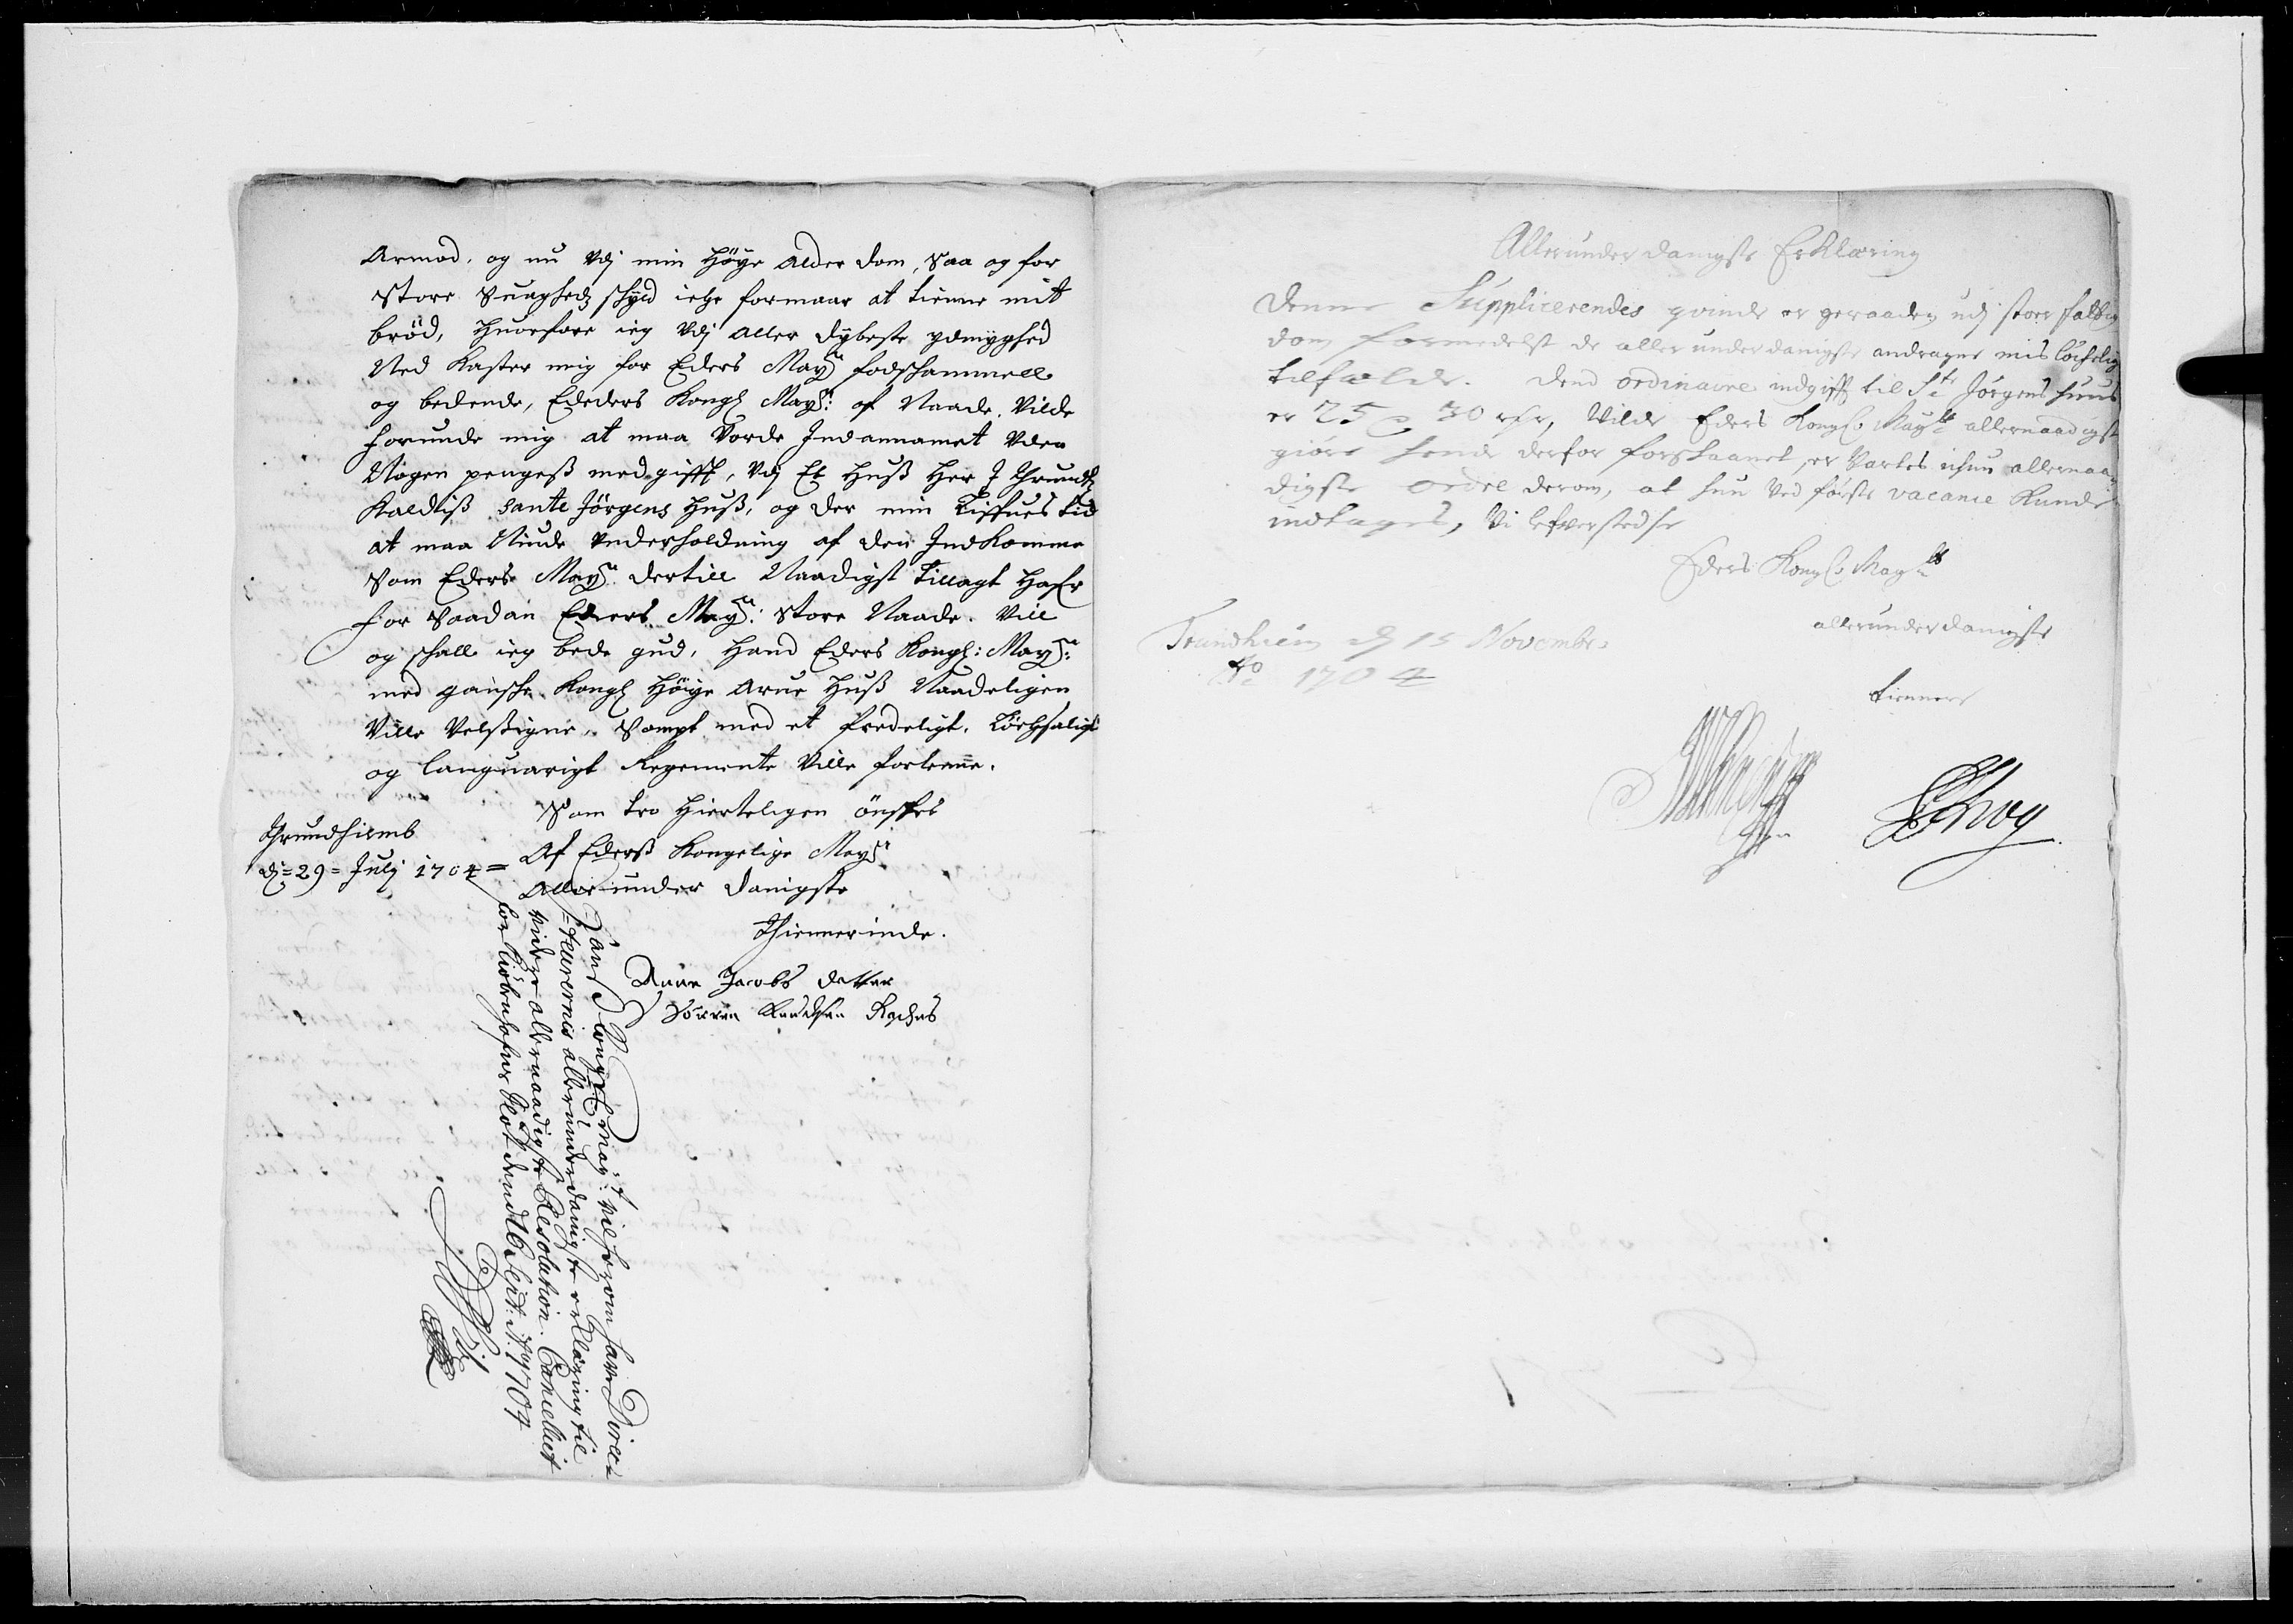 Armod. og nu Vdj min Høÿe Alder dom, Saa og for
Store Suaghedz schÿld iche formaar at tienne mit
brød, Huorfore ieg Vdj Aller dÿbeste ÿdmÿghed
Ned Kaster mig for Eders Maÿ: fodschammell
og bedende, Ededers Kongl Maÿ: af Naade. Vilde
forunde mig at maa Vorde Indannamet Vden
Nogen pengeß medgifft, Vdj Et Huß Her I Thrundh
Kaldiß Sante Jörgens Huß, og der min Liffues tid
at maa Niude Vnderholdning af den Indkomme
Som Eders Maÿ: dertill Naadigst tillagt Hafr
for Saadan Eders Maÿ: Store Naade. Vill
og schall ieg bede gud, Hand Eders Kongl: Maÿ:
med gansche Kongl Höÿe Arue Huß Naadeligen
Ville Velßigne, Sampt med et fredeligt, Löchsaligt
og languarigt Regemente Ville forlenne.
Som tro Hierteligen önsches
Af Ederß Kongelige Maÿ:
Aller under danigste
Thiennerinde.
Thrundhiemb
dj = 29 = Julj 1704 =
Anne Jacobs datter
Sörren Knudsen Raches
Hans Kongl: Maÿ:t vil herom have Direc
teurernis allerunderdanigste erklæring til
videre allernaadigste Resolution. Cancelliet
for Kiöbenhafns Slot dend 16 Sept: Ao 1704
Allerunderdanigste Erklæring
Denne Supplicerendes qvinde er geraaden udj stoer fattig
dom formedelst de allerunderdanigste andragne mislöchelig
tilfælde. Dend ordinaire indgifft til St Jørgens huus
er 25 à 30 rdr, Vilde Eders Kongl. Mayts allernaadigst
giøre hende derfor forskaanet, er Vartes ichun allernaa
digste ordre derom, at hun Ved förste vacance Kunde
indtages, Vi lefver stedse
Eders Kongl. Mayts
allerunderdanigste
tienere
Trundhiem dj 15 November
Ao 1704